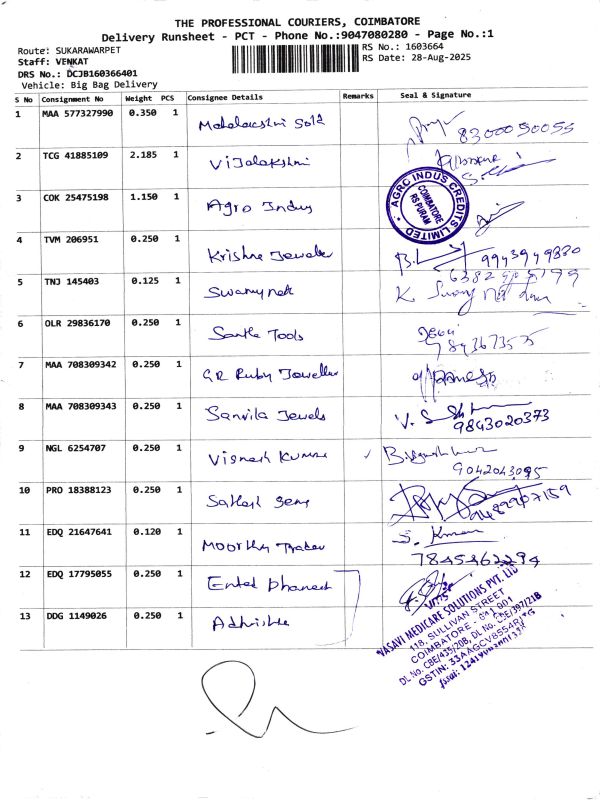 THE PROFESSIONAL COURIERS, COIMBATORE
Delivery Runsheet - PCT - Phone No.:9047080280 - Page No.:1
Route: SUKARAWARPET
Staff: VENKAT
DRS No.: DCJB160366401
Vehicle: Big Bag Delivery
RS No.: 1603664
RS Date: 28-Aug-2025
S No Consignment No Weight PCS Consignee Details Remarks Seal & Signature
1 MAA 577327990 0.350 1 Mahalakshmi Gold 8300050055
2 TCG 41885109 2.185 1 Vijalakshmi
3 COK 25475198 1.150 1 Agro Indus
AGRO INDUS CREDITS LIMITED
COIMBATORE
RS PURAM
4 TVM 206951 0.250 1 Krishna Jeweller 9943949880
5 TNJ 145403 0.125 1 Swamynath K
6 OLR 29836170 0.250 1 Tools
7 MAA 708309342 0.250 1 GR Ruby Jeweller
8 MAA 708309343 0.250 1 Sanvila Jewels 9843020373
9 NGL 6254707 0.250 1 Vignesh Kumar 9042043095
10 PRO 18388123 0.250 1 Sathish Gems
11 EDQ 21647641 0.120 1 Moorthy Trader S. Kumar
7845462294
12 EDQ 17795055 0.250 1
13 DDG 1149026 0.250 1
VASAVI MEDICARE SOLUTIONS PVT. LTD
118, SULLIVAN STREET
COIMBATORE - 641 001
DL No. CBE/435/20B, DL No. CBE/397/21B